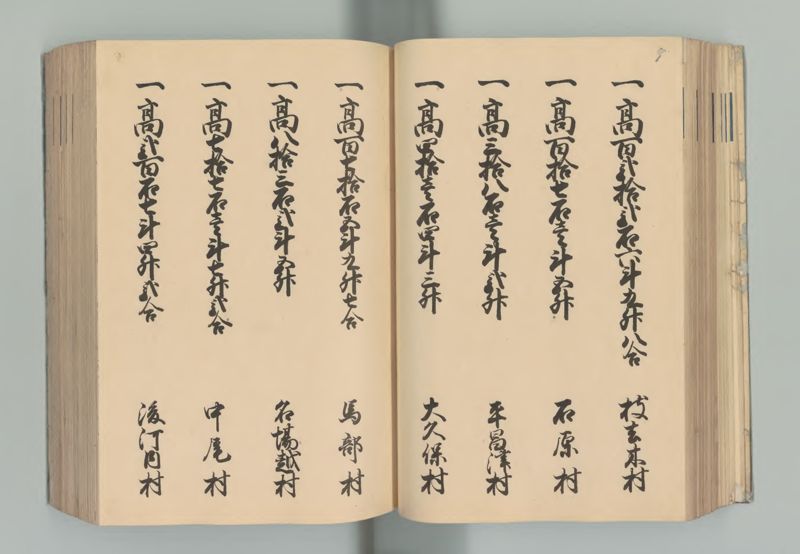 一高百弐拾弐石六斗九升八合 枝去木村
一高百拾七石壱斗五升 石原村
一高三拾八石壱斗弐升 平昌津村
一高四拾壱石四斗三升 大久保村
一高百七拾石五斗九升七合 馬部村
一高八拾三石弐斗五升 名場越村
一高七拾七石壱斗七升弐合 中尾村
一高弐百石七斗四升弐合 村